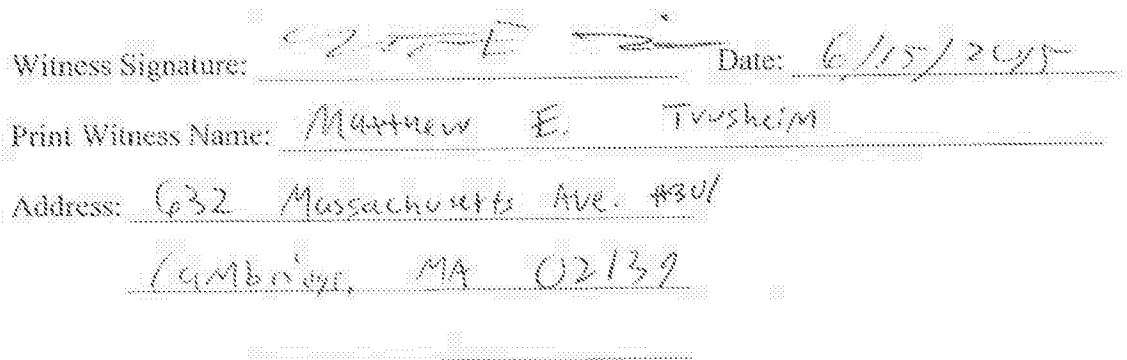 Witness Signature: Date: 6/15/2015
Print Witness Name: Matthew E. Trusheim
Address: 632 Massachusetts Ave. #301
Cambridge, MA 02139